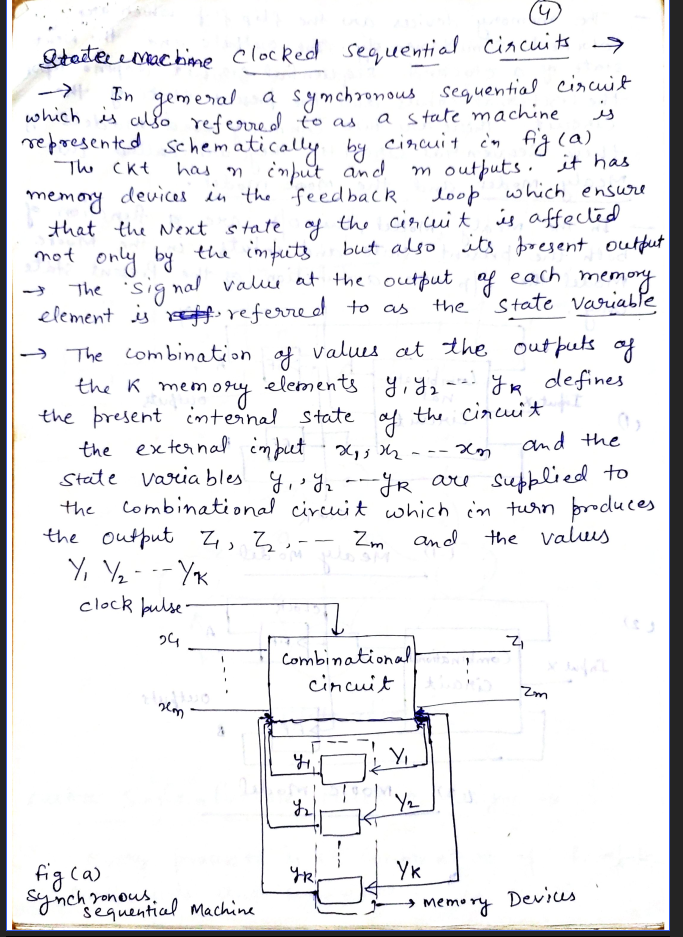 4
State machine Clocked sequential circuits →
→ In general a synchronous sequential circuit
which is also referred to as a state machine is
represented schematically by circuit in fig (a)
The ckt has n input and m outputs. it has
memory devices in the feedback loop which ensure
that the Next state of the circuit is affected
not only by the inputs but also its present output
→ The signal value at the output of each memory
element is referred to as the state variable
→ The combination of values at the outputs of
the K memory elements y, y2 --- yk defines
the present internal state of the circuit
the external input x1, x2 --- xn and the
state variables y1, y2 --- yk are supplied to
the combinational circuit which in turn produces
the output Z1, Z2, -- Zm and the values
Y1 Y2 --- YK
clock pulse
x1
Z1
combinational
circuit
xn
Zm
y1
Y1
y2
Y2
yk
YK
fig (a)
synchronous
sequential Machine
→ memory Devices